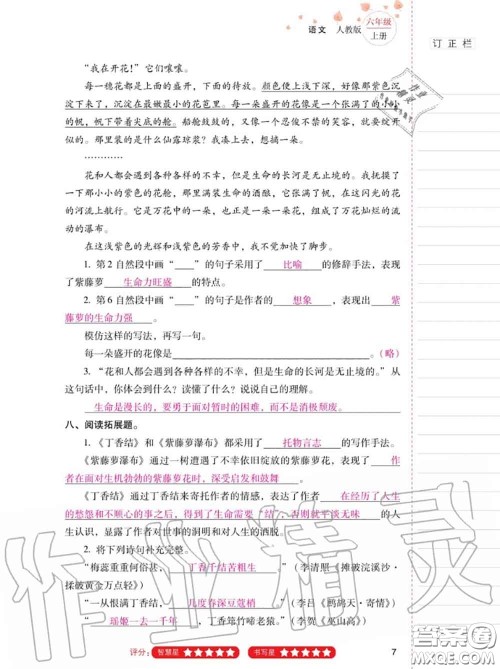 语文 人教版 六年级
上册
订正栏
“我在开花!”它们嚷嚷。
每一穗花都是上面的盛开，下面的待放。颜色便上浅下深，好像那紫色沉
淀下来了，沉淀在最嫩最小的花苞里。每一朵盛开的花像是一个张满了的小小
的帆，帆下带着尖底的舱。船舱鼓鼓的，又像一个忍俊不禁的笑容，就要绽开
似的。那里装的是什么仙露琼浆？我凑上去，想摘一朵。
…………
花和人都会遇到各种各样的不幸，但是生命的长河是无止境的。我抚摸了
一下那小小的紫色的花舱，那里满装生命的酒酿，它张满了帆，在这闪光的花
的河流上航行。它是万花中的一朵，也正是一朵一朵花，组成了万花灿烂的流动
的瀑布。
在这浅紫色的光辉和浅紫色的芳香中，我不觉加快了脚步。
1. 第2自然段中画“____”的句子采用了 比喻 的修辞手法，表现
了紫藤萝 生命力旺盛 的特点。
2. 第6自然段中画“____”的句子是作者的 想象 ，表现出 紫
藤萝的生命力强 。
模仿这样的写法，再写一句。
每一朵盛开的花像是____。（略）
3. “花和人都会遇到各种各样的不幸，但是生命的长河是无止境的。”从
这句话中，你体会到了什么？读懂了什么？说说自己的理解。
生命是漫长的，要勇于面对暂时的困难，而不是消极颓废。
八、阅读拓展题。
1. 《丁香结》和《紫藤萝瀑布》都采用了 托物言志 的写作手法。
《紫藤萝瀑布》通过一树遭遇了不幸依旧绽放的紫藤萝花，表现了 作者
在面对生机勃勃的紫藤萝花时，深受启发和鼓舞 。
《丁香结》通过丁香结来寄托作者的情感，表达了作者 在经历了人生
的愁怨和不顺心的事之后，得到的感悟：人生需要“结”，否则就平淡无味 的人
生观点，显露了作者对世事的洞明和对人生的洒脱。
2. 将下列诗句补充完整。
“梅蕊重重何俗甚， 丁香千结苦粗生 。”（李清照《摊破浣溪沙·
揉破黄金万点轻》）
“一从恨满丁香结， 几度春深豆蔻梢 。”（李吕《鹧鸪天·寄情》）
“ 瑶姬一去一千年 ，丁香筇竹啼老猿。”（李贺《巫山高》）
评分： 智慧星 ★★★★★ 书写星 ★★★★★
7
作业精灵